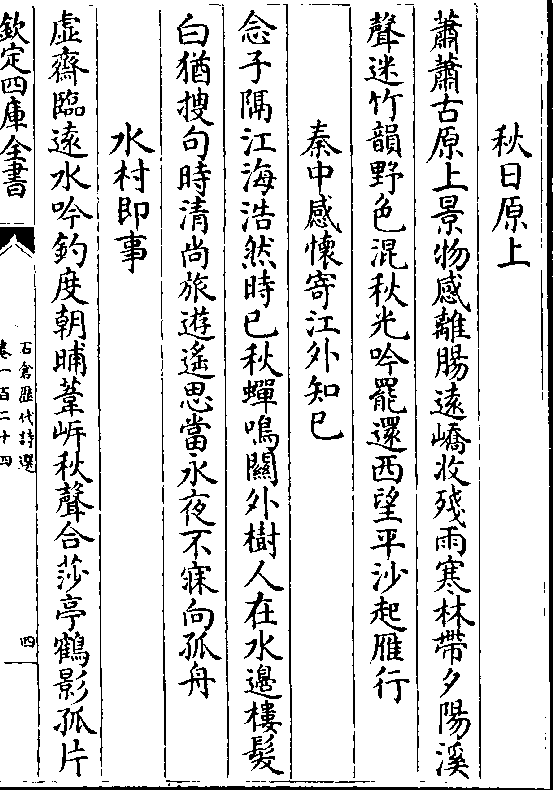 秋日原上
蕭蕭古原上景物感離腸遠嶠收殘雨寒林帶夕陽溪
聲迷竹韻野色混秋光吟罷還西望平沙起雁行
秦中感懷寄江外知已
念子隔江海浩然時已秋蟬鳴關外樹人在水邊樓髮
白猶搜句時清尚旅遊遙思當永夜不寐向孤舟
水村即事
虛齋臨遠水吟釣度朝晡葦岍秋聲合莎亭鶴影孤片
欽定四庫全書
石倉歷代詩選
卷一百二十四
四